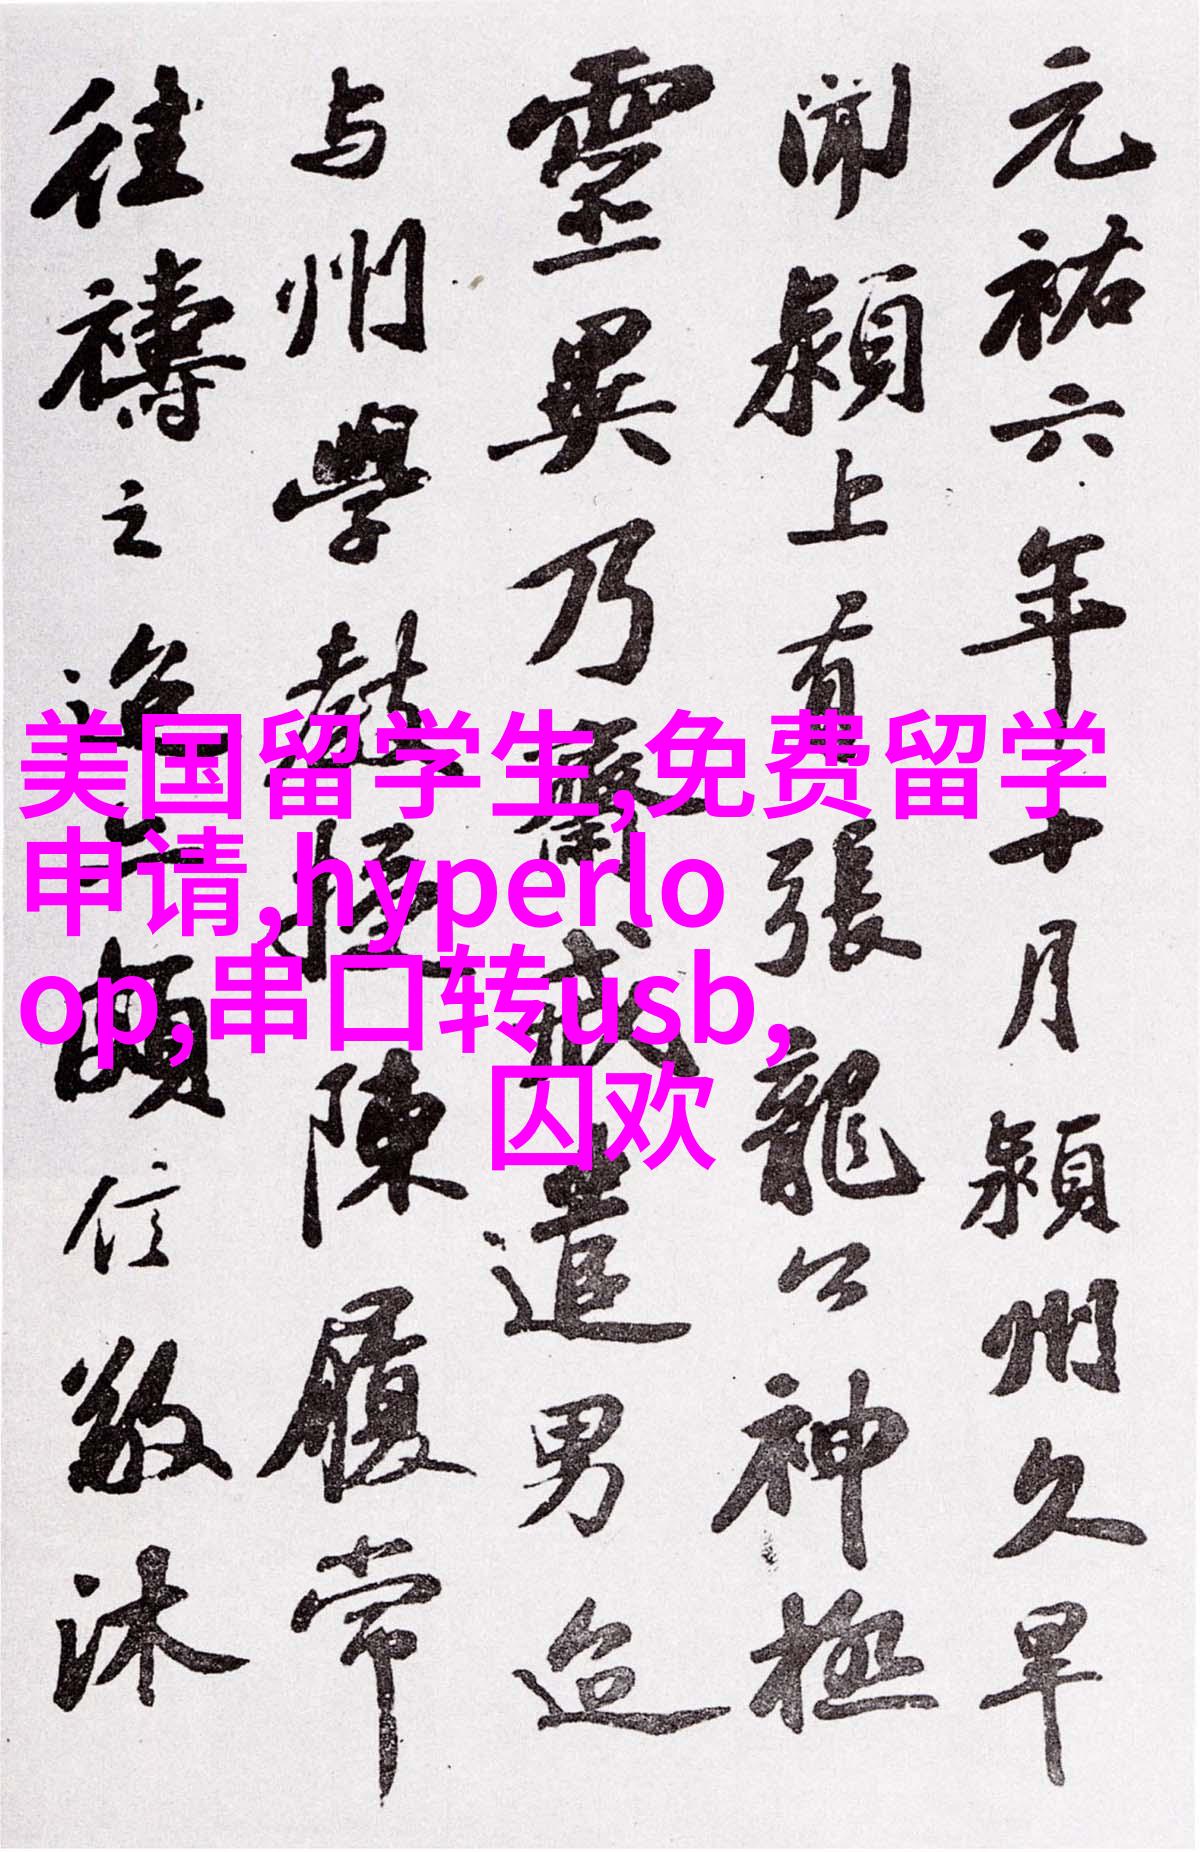 元祐六年十月潁州久旱
聞潁上有張龍公神極
靈異乃齋戒遣男迨
与州學教授陳履常
往禱之迨亦頗信敬沐
美国留学生,免费留学
申请,hyperlo
op,串口转usb,
囚欢